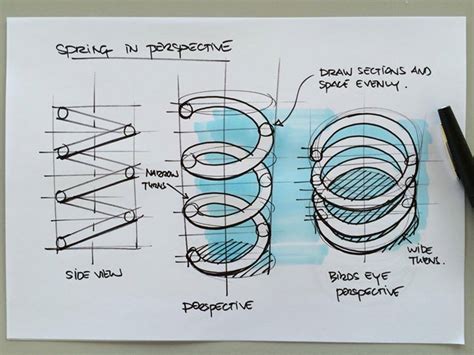 SPRING IN PERSPECTIVE
DRAW SECTIONS AND
SPACE EVENLY.
NARROW
TURNS
SIDE VIEW
PERSPECTIVE
BIRDS EYE
PERSPECTIVE
WIDE
TURNS.